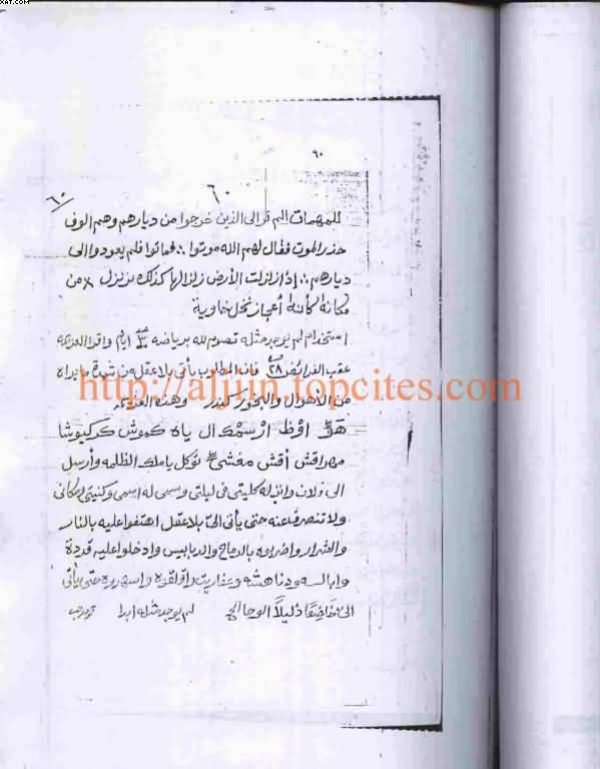 XAT.COM
٦٠
٦٠
٦٠
للمهمات الم تر الى الذين خرجوا من ديارهم وهم الوف
حذر الموت فقال لهم الله موتوا ∴ فماتوا فلم يعودوا الى
ديارهم ∴ إذا زلزلت الأرض زلزالها كذلك يزلزل من
مكانه كأنه أعجاز نخل خاوية
استخدام لم يوجد مثله تصوم لله برياضه ايام واقرا العزيمه
عقب الفرائض ٢٨ فان المطلوب يأتى بلا عقل من شدة ما يراه
من الأهوال والبخور كندر وهذه العزيمه
http://aljiin.topcites.com
ال ياه كموش كركيوشا
مهراقش أقش مقشى توكل يا ملك الظلمه وأرسل
الى فلان وانه له كليتى فى ليلتى وسمى له اسمى وكنيتى ومكانى
ولا تنصرف عنه حتى يأتى الى بلا عقل اهتفوا عليه بالنار
والشرار واضربوه بالرماح والدبابيس وادخلوا عليه قردة
وعفاريت حتى يأتى
الى خاضعا ذليلا الوحا لم يوجد مثله ابدا